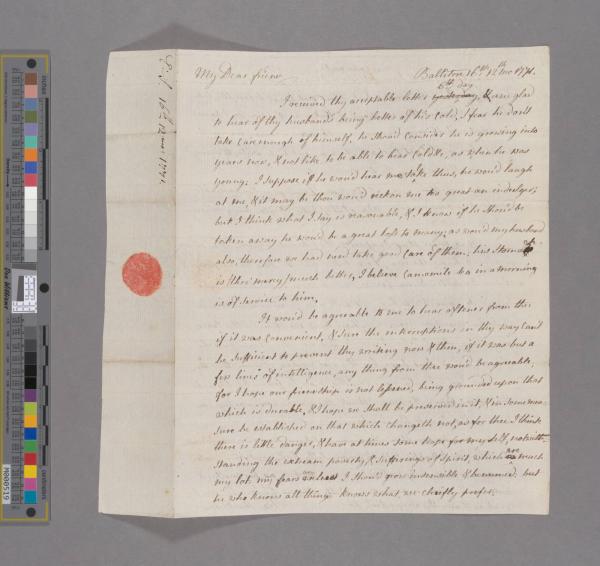 My Dear friend
Ballitore 16th 12th mo 1774.
6th day
I received thy acceptable letter yesterday, & am glad
to hear of thy husbands being better of his Cold, I fear he dont
take care enough of himself, he should consider he is growing into
years now, & not like to be able to bear Colds &c, as when he was
young: I suppose if he would hear me talk thus, he would laugh
at me, & it may be thou would reckon me too great an indulger;
but I think what I say is reasonable, & I know if he should be
taken away he would be a great loss to many; as would my husband
also, therefore we had need take good care of them: his Stomach
is (thro mercy) much better, I believe Camomile tea in a morning
is of service to him.
It would be agreeable to me to hear oftener from thee
if it was convenient, & sure the interruptions in thy way cant
be sufficient to prevent thy writing now & then, if it was but a
few lines of intelligence, any thing from thee would be agreeable,
for I hope our friendship is not lessened, being grounded upon that
which is durable, & I hope we shall be preserved in it, & in some mea-
sure be established on that which changeth not, as for thee I think
there is little danger, & have at times some hope for my self, notwith-
standing the extream poverty, & sufferings of spirit, which are much
my lot, my fears are I should grow insensible & benumed, but
he who knows all things knows what we chiefly prefer.
16th 12 mo 1774.
M000519
Don Williams